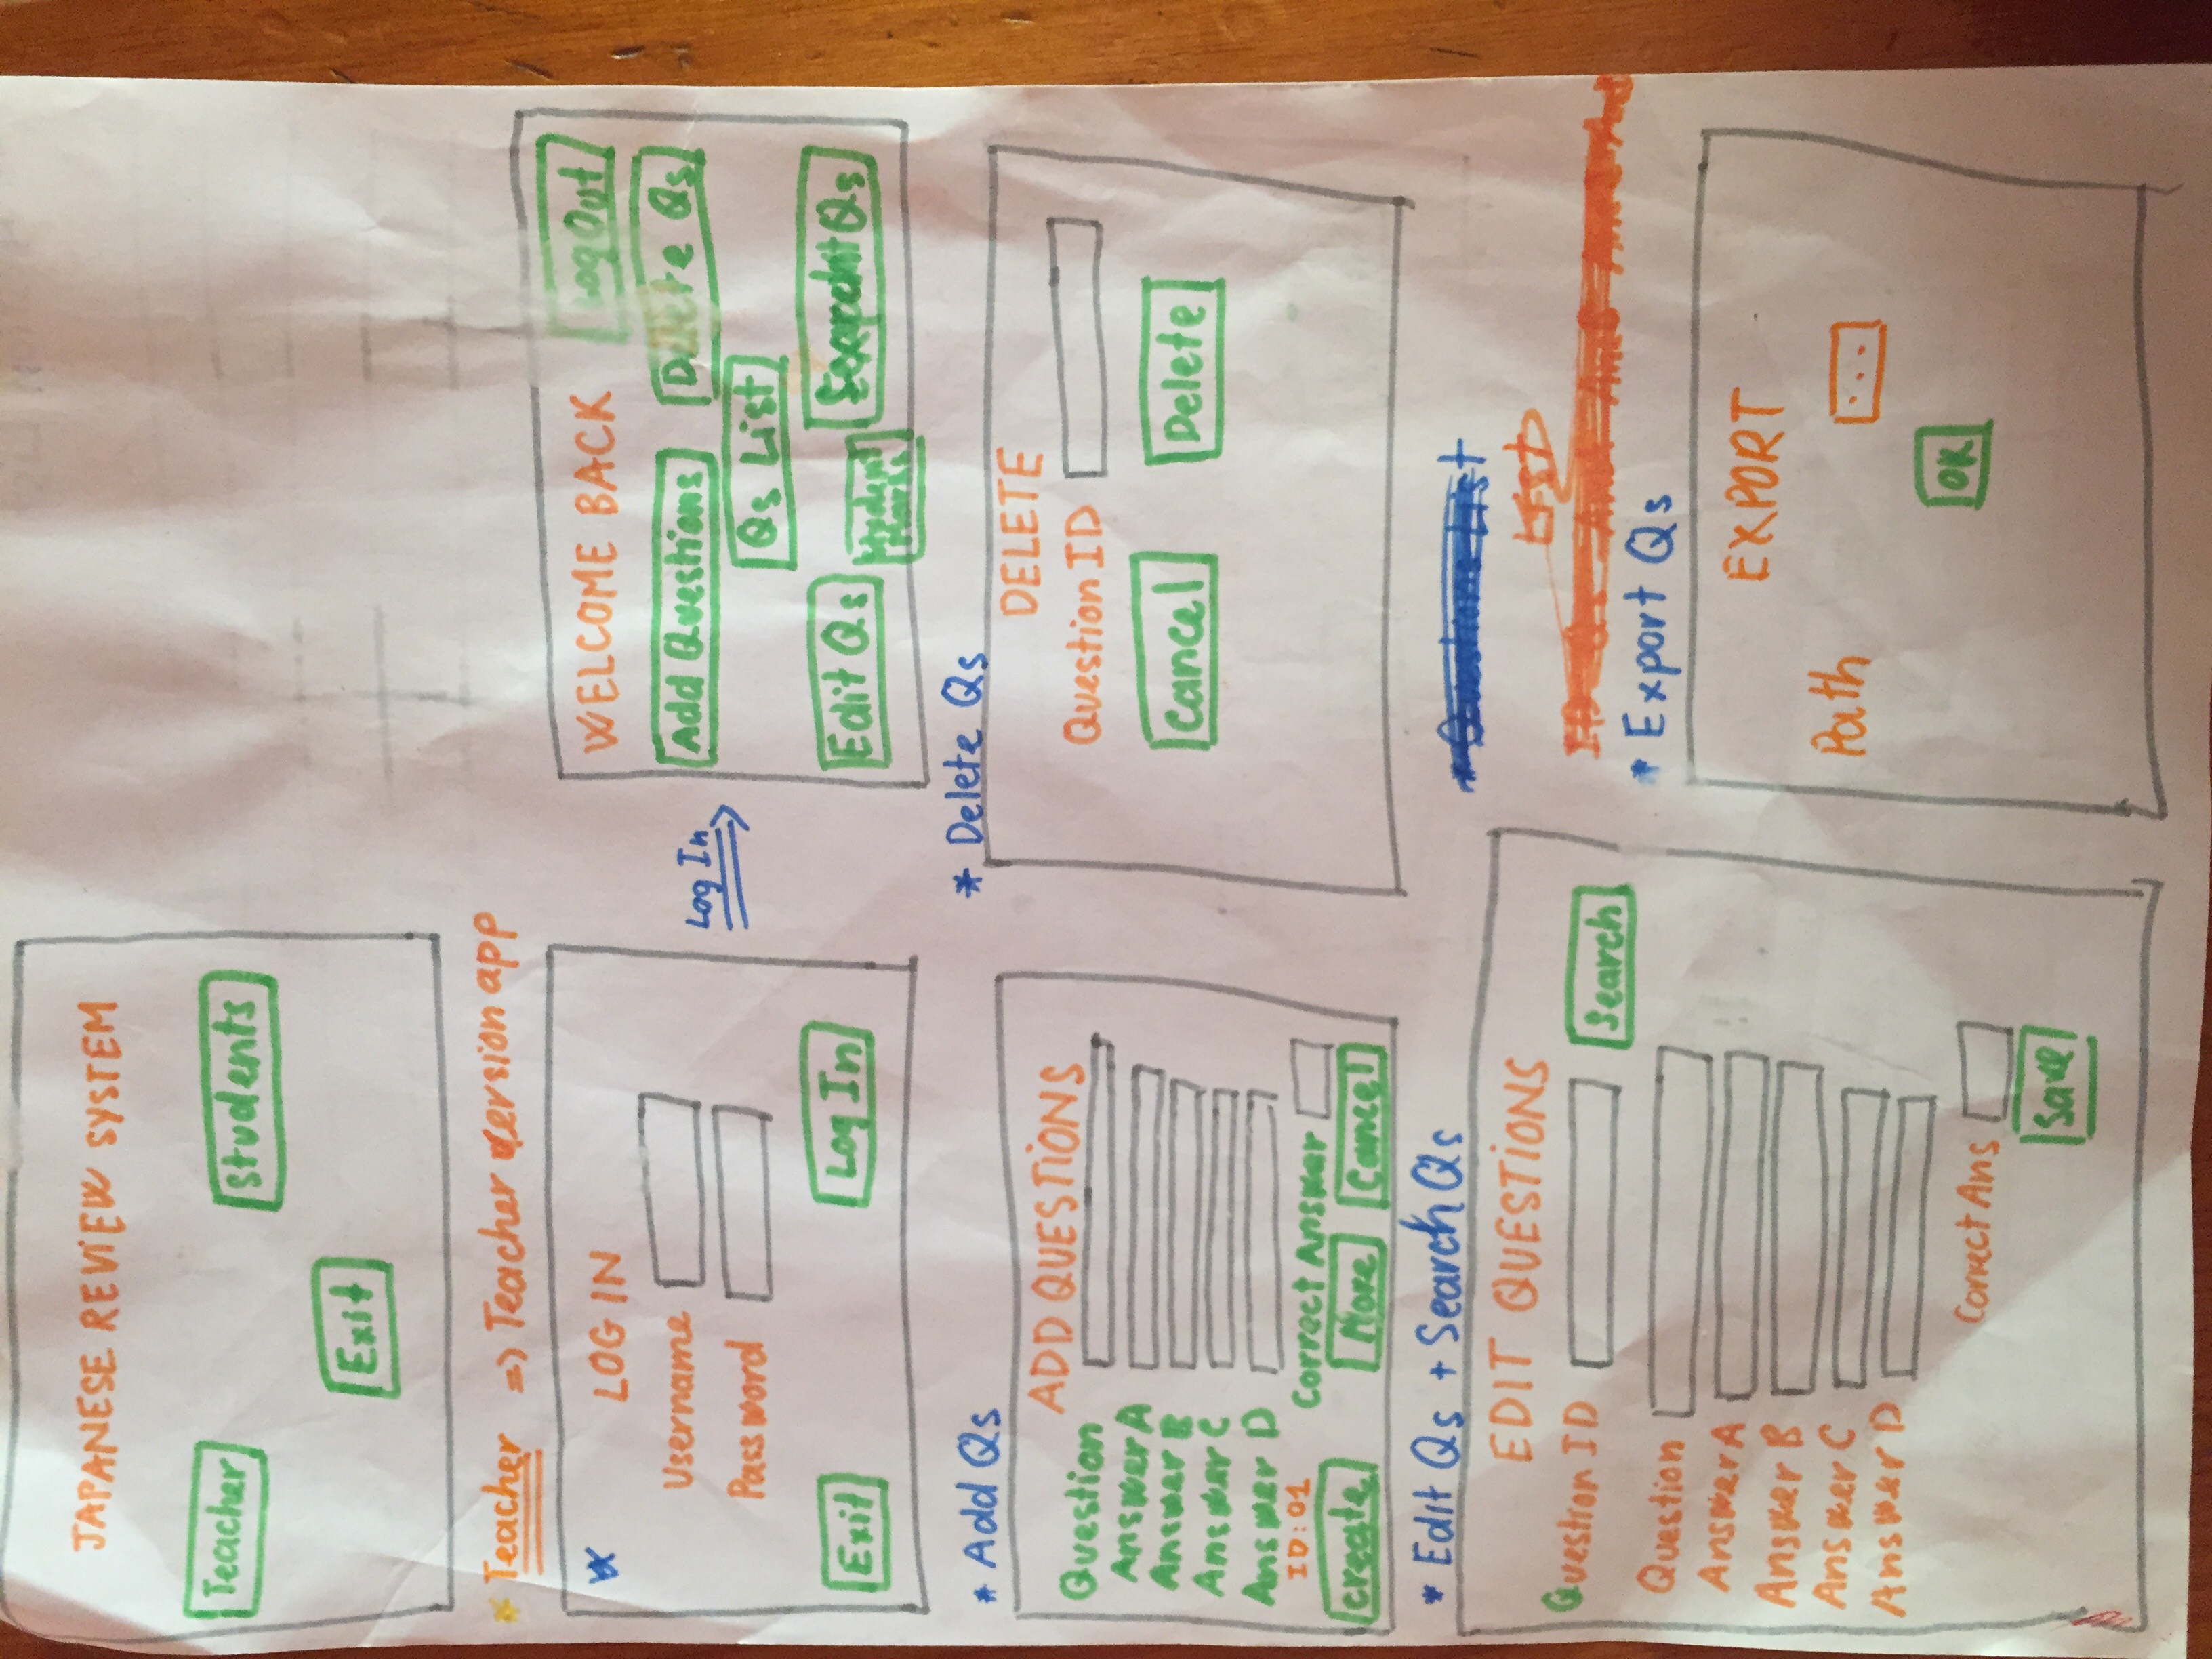 JAPANESE REVIEW SYSTEM
Teacher
Students
Exit
* Teacher => Teacher version app
LOG IN
Username
Password
Exit
Log In
Log In
WELCOME BACK
Log Out
Add Questions
Delete Qs
Qs List
Edit Qs
Student
Marks
Export Qs
* Add Qs
ADD QUESTIONS
Question
Answer A
Answer B
Answer C
Answer D
ID: 01
Correct Answer
Create
More
Cancel
* Delete Qs
DELETE
Question ID
Cancel
Delete
* Edit Qs + Search Qs
EDIT QUESTIONS
Question ID
Search
Question
Answer A
Answer B
Answer C
Answer D
Correct Ans
Save
* Questions List
List
ID Qs AnsA AnsB
* Export Qs
EXPORT
Path
...
OK